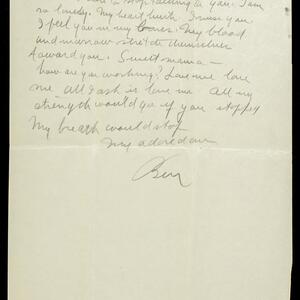 to stop talking to you. I am
so lonely. My heart hurts. I miss you.
I feel you in my bones. My blood
and marrow stretch themselves
toward you. Sweet mama —
how are you working? Love me love
me all I ask is love me. All my
strength would go if you stopped
My breath would stop
My adored one
Ben